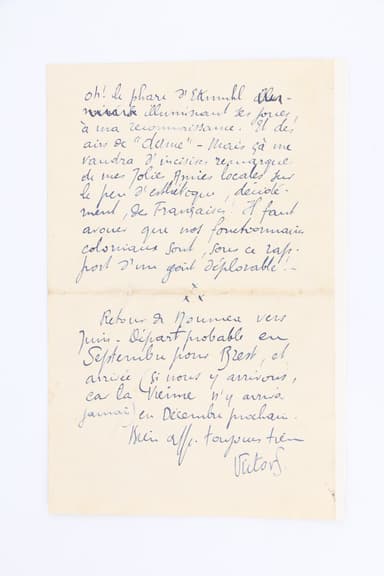 oh! le phare d'Ekmuhl
illuminant ses joues
à ma reconnaissance. Et des
airs de "dame" - Mais çà me
vaudra d'incisives remarques
de mes Jolies Amies locales sur
le peu d'esthétique, décidé-
ment, des Françaises! Il faut
avouer que nos fonctionnaires
coloniaux sont, sous ce rap-
port d'un goût déplorable! -
x
x x
Retour de Noumea vers
Juin - Départ probable en
Septembre pour Brest, et
arrivée (si nous y arrivons,
car la Vienne n'y arriva
jamais) en Décembre prochain.
Bien aff. toujours tien
VictorS